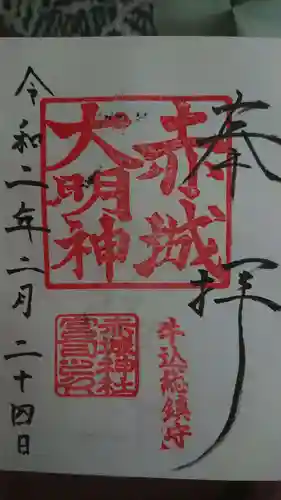 奉拝
赤城
大明神
牛込総鎮守
赤城神社
令和二年二月二十四日